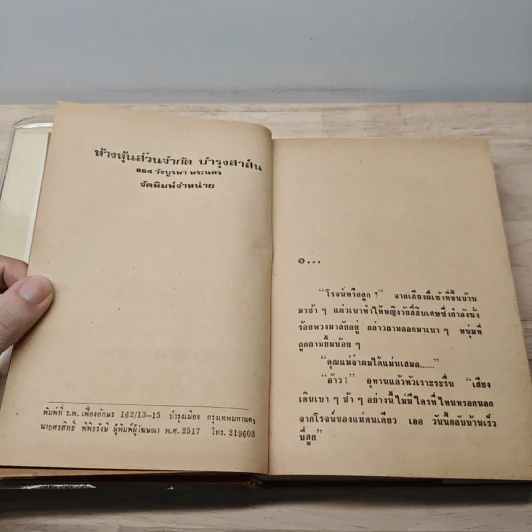 ห้างหุ้นส่วนจำกัด บำรุงสาส์น
๒๑๔ วังบูรพา พระนคร
จัดพิมพ์จำหน่าย
พิมพ์ที่ ร.พ. เฟื่องอักษร 162/13-15 บำรุงเมือง กรุงเทพมหานคร
นายศรสิทธิ์ พิพิธรังษี ผู้พิมพ์ผู้โฆษณา พ.ศ. 2517 โทร. 219603
๑...
“โรจน์หรือลูก ?” จากเสียงฝีเท้าที่ขึ้นบ้าน
มาช้า ๆ แผ่วเบาทำให้หญิงวัยสี่สิบเศษซึ่งกำลังนั่ง
ร้อยพวงมาลัยอยู่ กล่าวถามออกมาเบา ๆ หนุ่มที่
ถูกถามยิ้มน้อย ๆ
“คุณแม่จำผมได้แม่นเสมอ......”
“อ้าว!” อุทานแล้วหัวเราะระรื่น “เสียง
เดินเบา ๆ ช้า ๆ อย่างนี้ไม่มีใครที่ไหนหรอกนอก
จากโรจน์ของแม่คนเดียว เออ วันนี้กลับบ้านเร็ว
นี่ลูก”